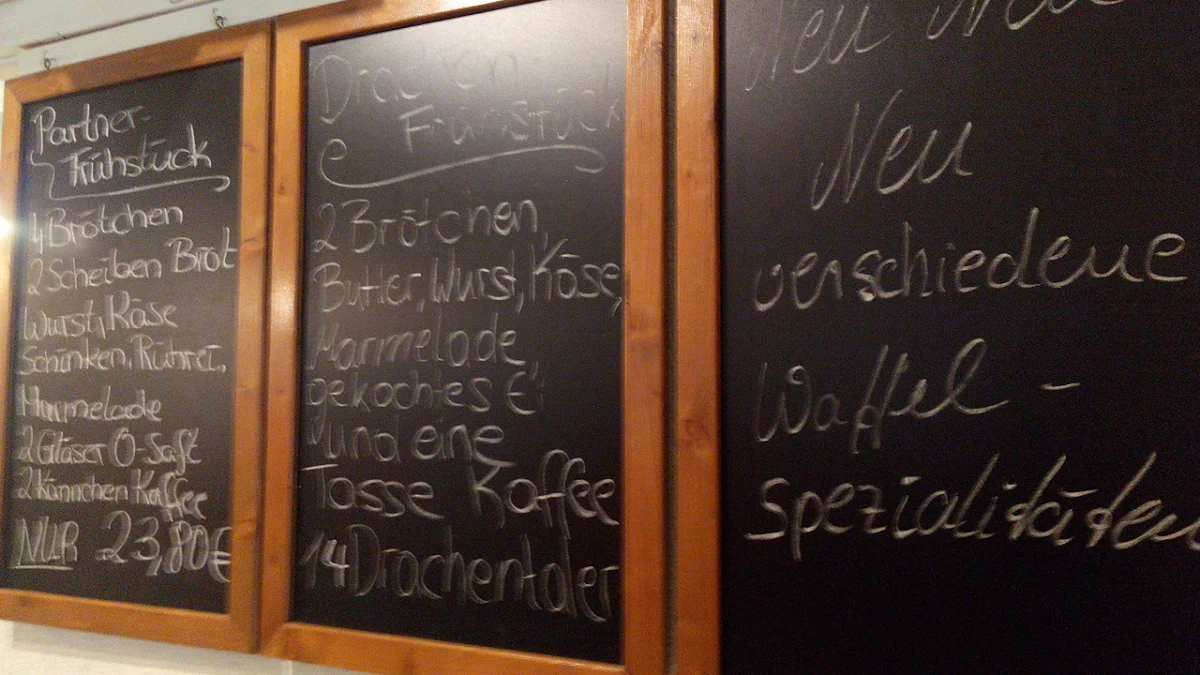 Partner-
Frühstück
4 Brötchen
2 Scheiben Brot
Wurst, Käse
Schinken, Rührei,
Marmelade
2 Gläser O-Saft
2 Kännchen Kaffee
NUR 23,80€
Drachen-
Frühstück
2 Brötchen,
Butter, Wurst, Käse,
Marmelade,
gekochtes Ei
und eine
Tasse Kaffee
14 Drachentaler
Neu Neu
Neu
verschiedene
Waffel-
spezialitäten